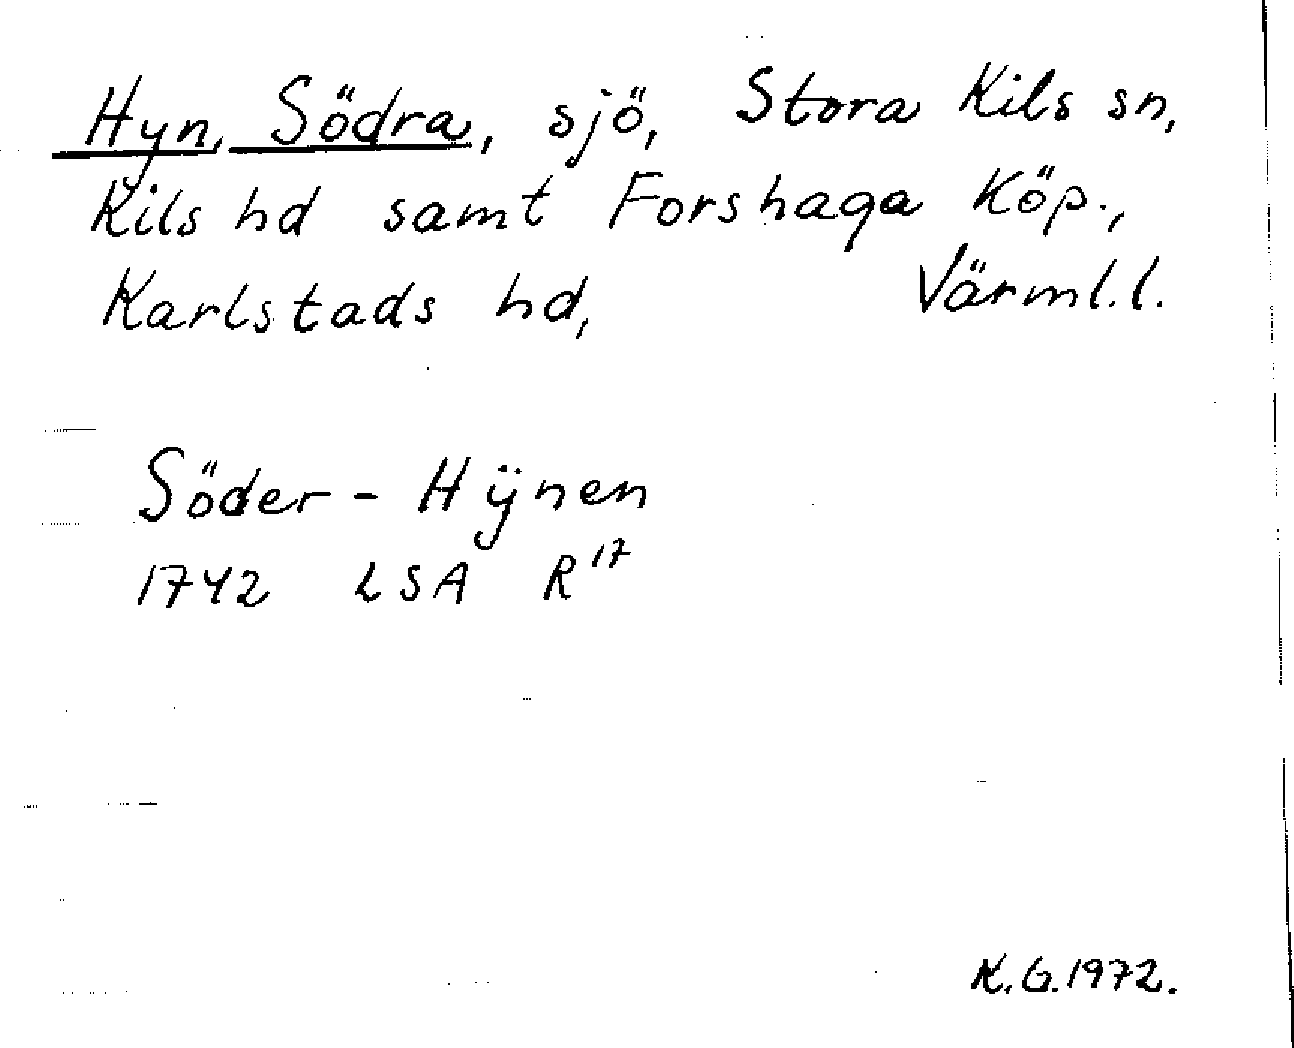 Hyn, Södra, sjö, Stora Kils sn,
Kils hd samt Forshaga Köp.,
Karlstads hd, Värml.l.
Söder - Hÿnen
1742 LSA R17
K.G.1972.